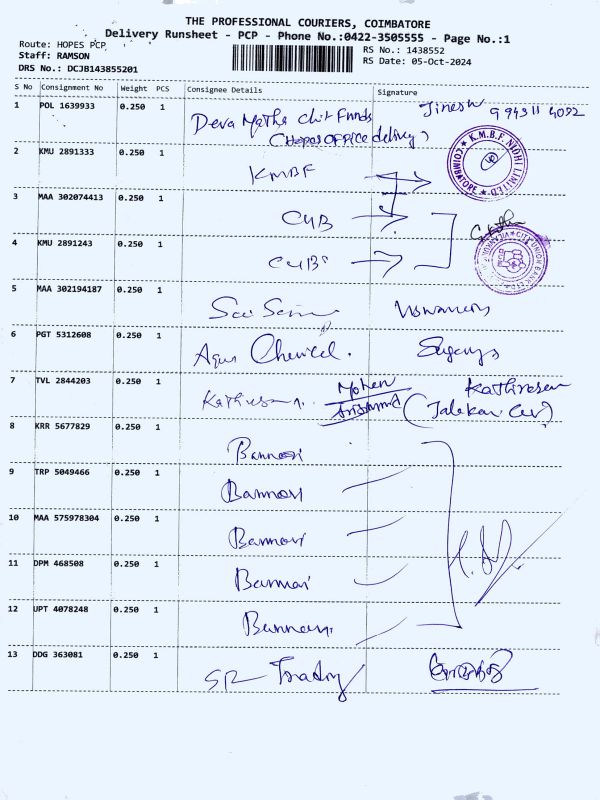 THE PROFESSIONAL COURIERS, COIMBATORE
Delivery Runsheet - PCP - Phone No.:0422-3505555 - Page No.:1
Route: HOPES PCP
Staff: RAMSON
DRS No.: DCJB143855201
RS No.: 1438552
RS Date: 05-Oct-2024
S No Consignment No Weight PCS Consignee Details Signature
1 POL 1639933 0.250 1 Deva Matha Chit Funds Jinesh
(Hopes OFFICE delivery)
2 KMU 2891333 0.250 1 KMBF K.M.B.F. NIDHI LIMITED COIMBATORE
3 MAA 302074413 0.250 1 CUB
4 KMU 2891243 0.250 1 CUB CITY UNION BANK LTD
5 MAA 302194187 0.250 1
6 PGT 5312608 0.250 1 Chemical.
7 TVL 2844203 0.250 1 Kathiresan Mohan Kathiresan
8 KRR 5677829 0.250 1 Bannari
9 TRP 5049466 0.250 1 Bannari
10 MAA 575978304 0.250 1 Bannari
11 DPM 468508 0.250 1 Bannari
12 UPT 4078248 0.250 1 Bannari
13 DDG 363081 0.250 1 SR Trading